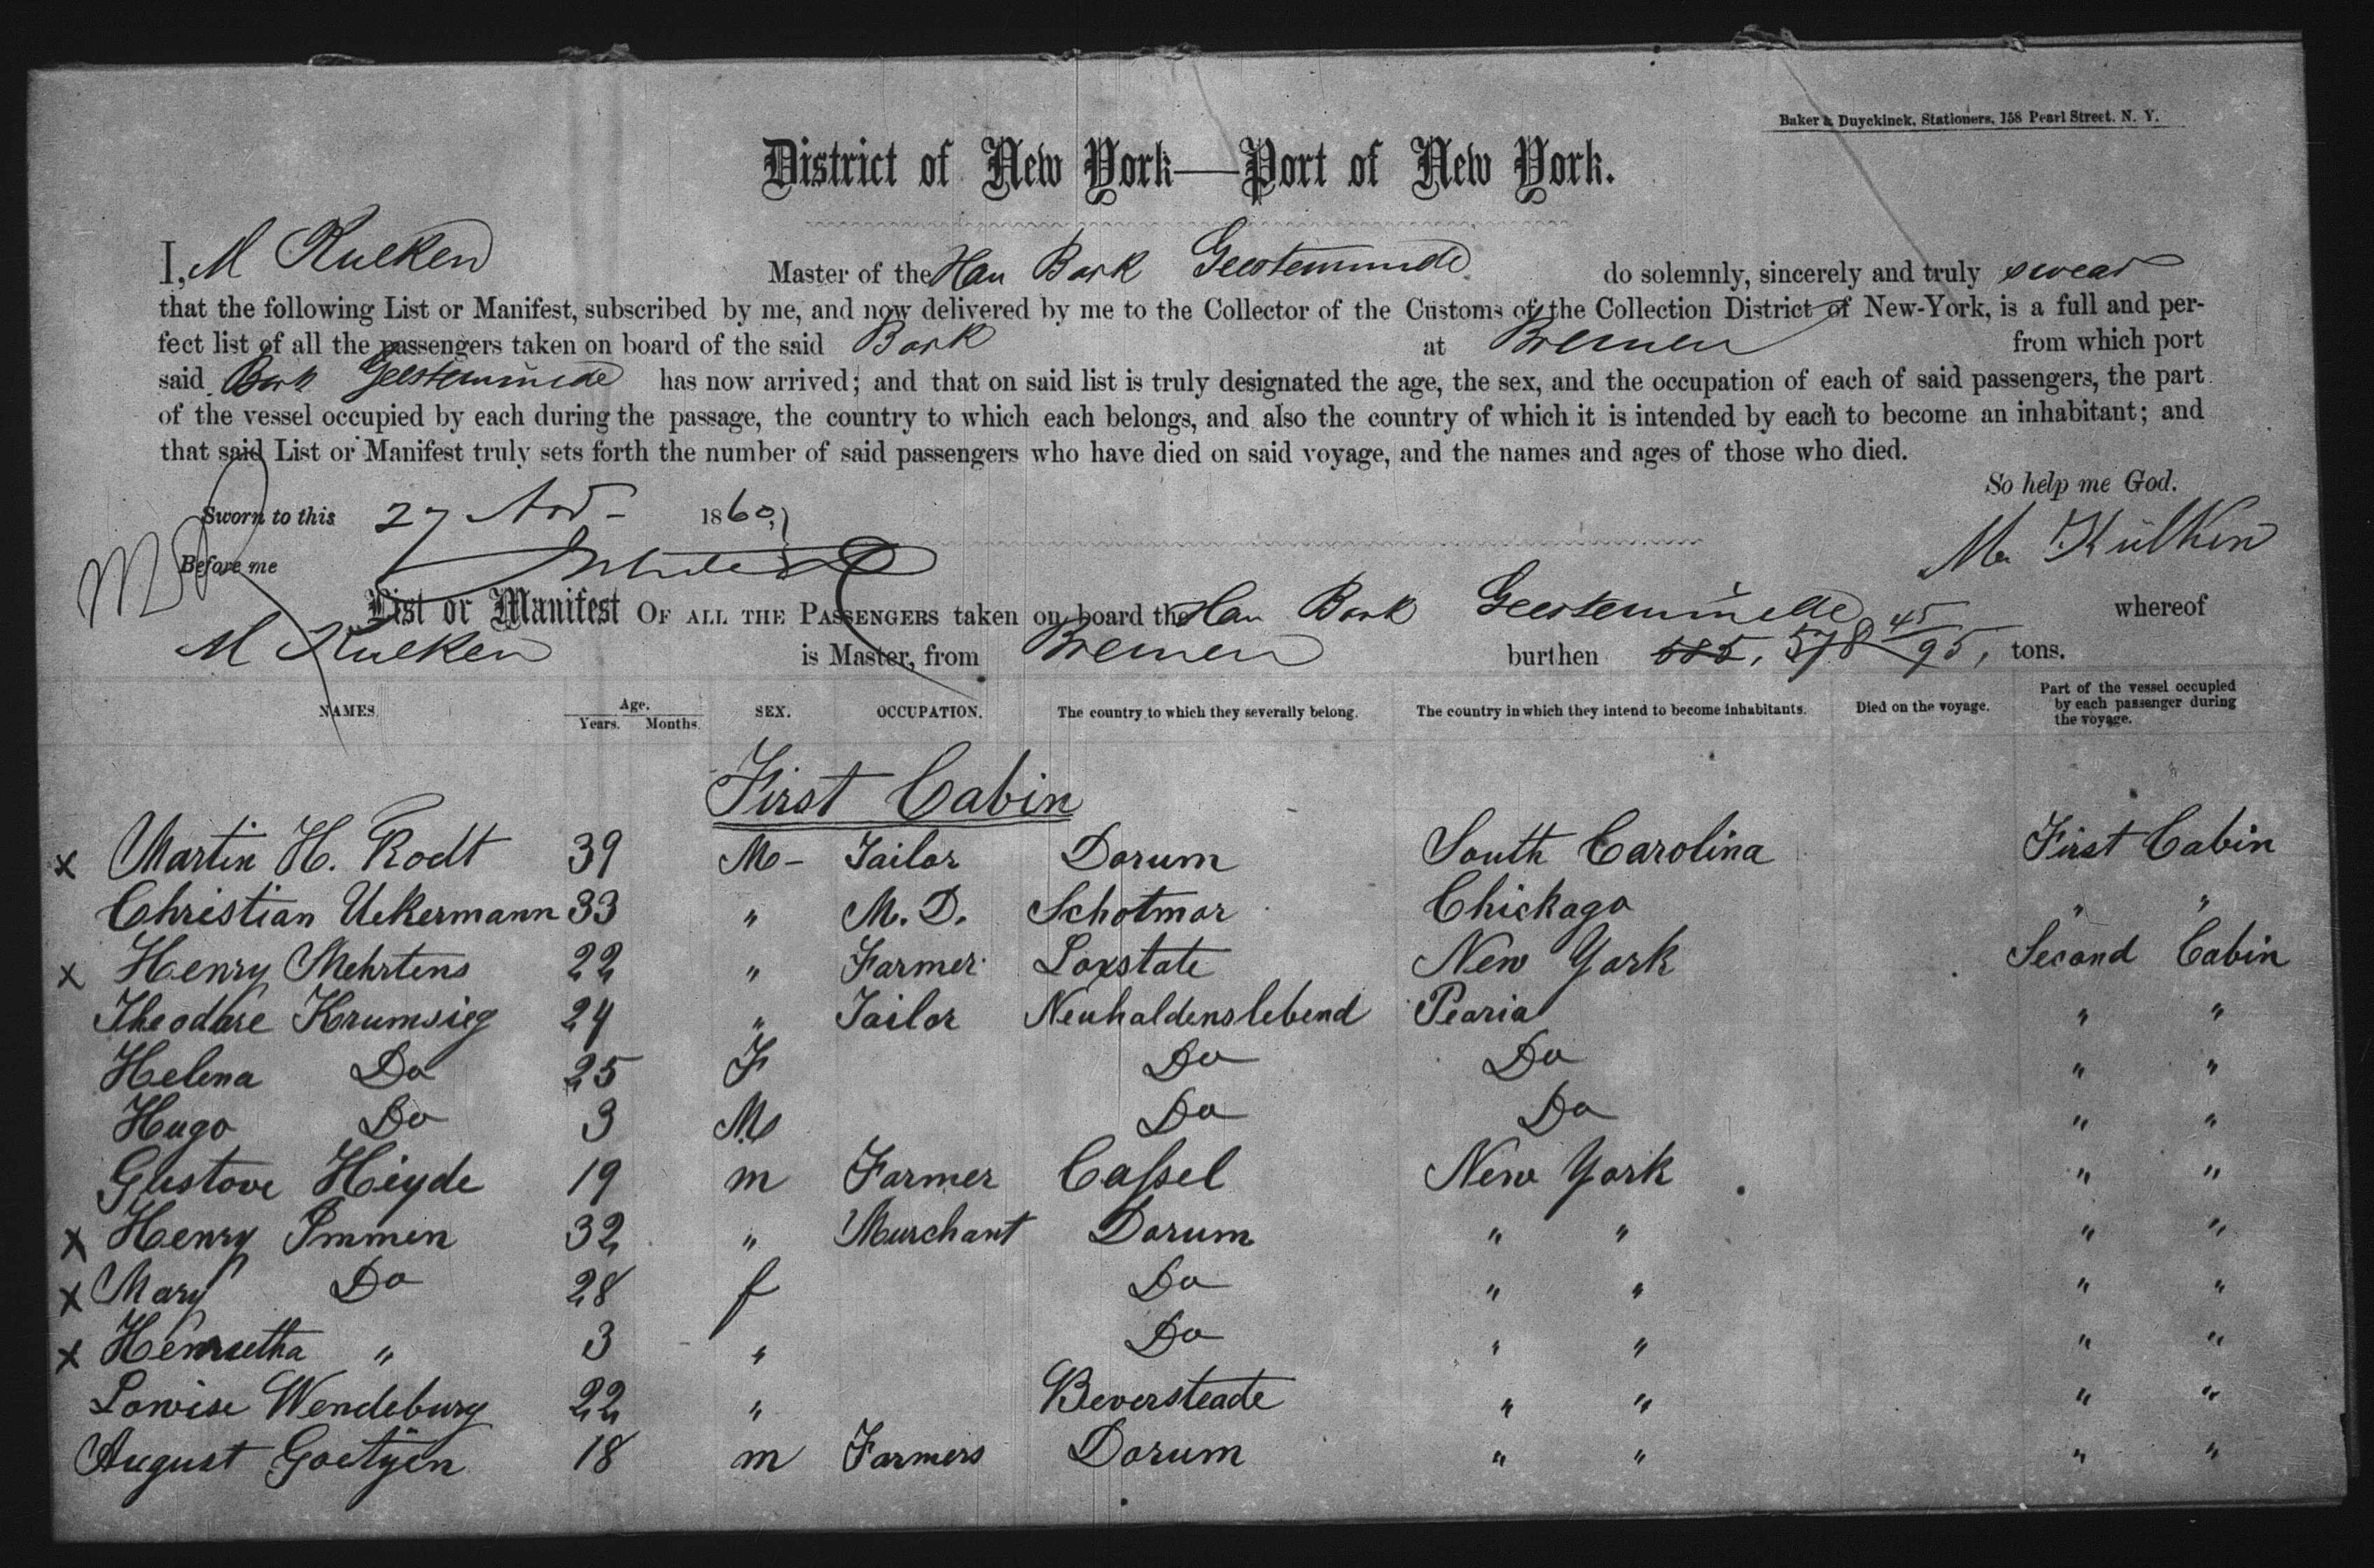 Baker & Duyckinck, Stationers, 158 Pearl Street, N. Y.
District of New York—Port of New York.
I, M Kulken Master of the Han Bark Geestemunde do solemnly, sincerely and truly swear
that the following List or Manifest, subscribed by me, and now delivered by me to the Collector of the Customs of the Collection District of New-York, is a full and per-
fect list of all the passengers taken on board of the said Bark at Bremen from which port
said Bark Geestemünde has now arrived; and that on said list is truly designated the age, the sex, and the occupation of each of said passengers, the part
of the vessel occupied by each during the passage, the country to which each belongs, and also the country of which it is intended by each to become an inhabitant; and
that said List or Manifest truly sets forth the number of said passengers who have died on said voyage, and the names and ages of those who died.
So help me God.
Sworn to this 27 Nov - 1860
M. Külken
Before me
List or Manifest OF ALL THE PASSENGERS taken on board the Han Bark Geestemünde whereof
M Kulken is Master, from Bremen burthen 585, 578 45/95, tons.
NAMES. Age. Years. Months. SEX. OCCUPATION. The country to which they severally belong. The country in which they intend to become inhabitants. Died on the voyage. Part of the vessel occupied by each passenger during the voyage.
First Cabin
x Martin H. Rodt 39 M - Tailor Dorum South Carolina First Cabin
Christian Uekermann 33 " M. D. Schotmar Chickago " "
x Henry Mehrtens 22 " Farmer Loxstate New York Second Cabin
Theodore Krumsieg 24 " Tailor Neuhaldenslebend Peoria " "
Helena Do 25 F Do Do " "
Hugo Do 3 M Do Do " "
Gustove Heyde 19 m Farmer Cassel New York " "
x Henry Immen 32 " Murchant Dorum " " " "
x Mary Do 28 f Do " " " "
x Henruetha " 3 " Do " " " "
Lowise Wendeburg 22 " Beversteade " " " "
August Goetyen 18 m Farmers Dorum " " " "